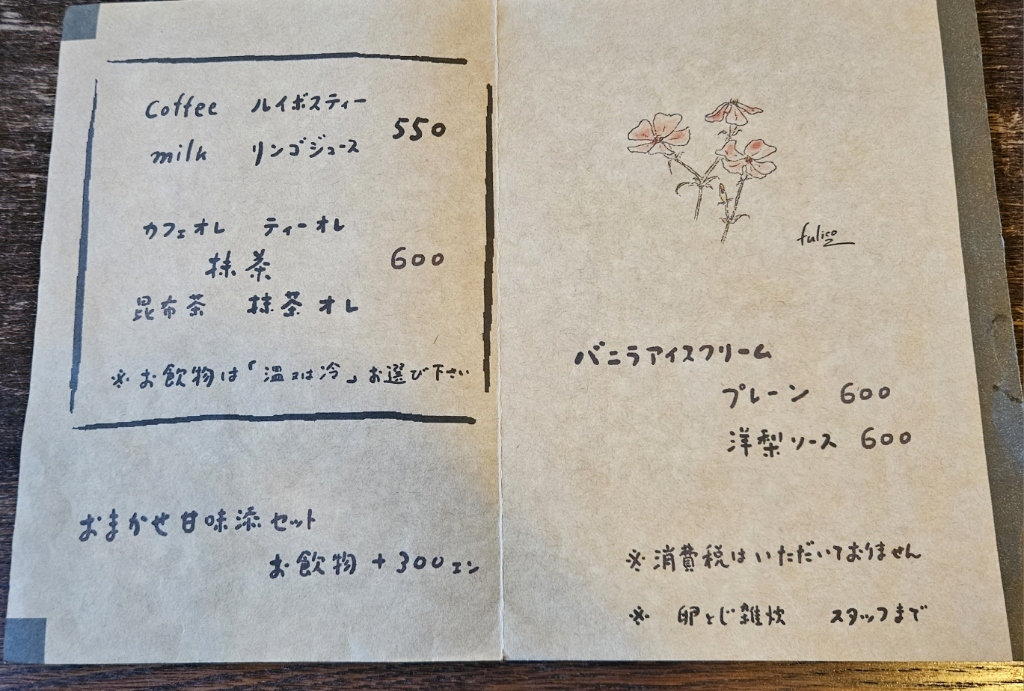 coffee ルイボスティー
550
milk リンゴジュース
カフェオレ ティーオレ
抹茶 600
昆布茶 抹茶オレ
※お飲物は「温又は冷」お選び下さい
おまかせ甘味添セット
お飲物+300エン
fulico
バニラアイスクリーム
プレーン 600
洋梨ソース 600
※消費税はいただいておりません
※ 卵とじ雑炊 スタッフまで